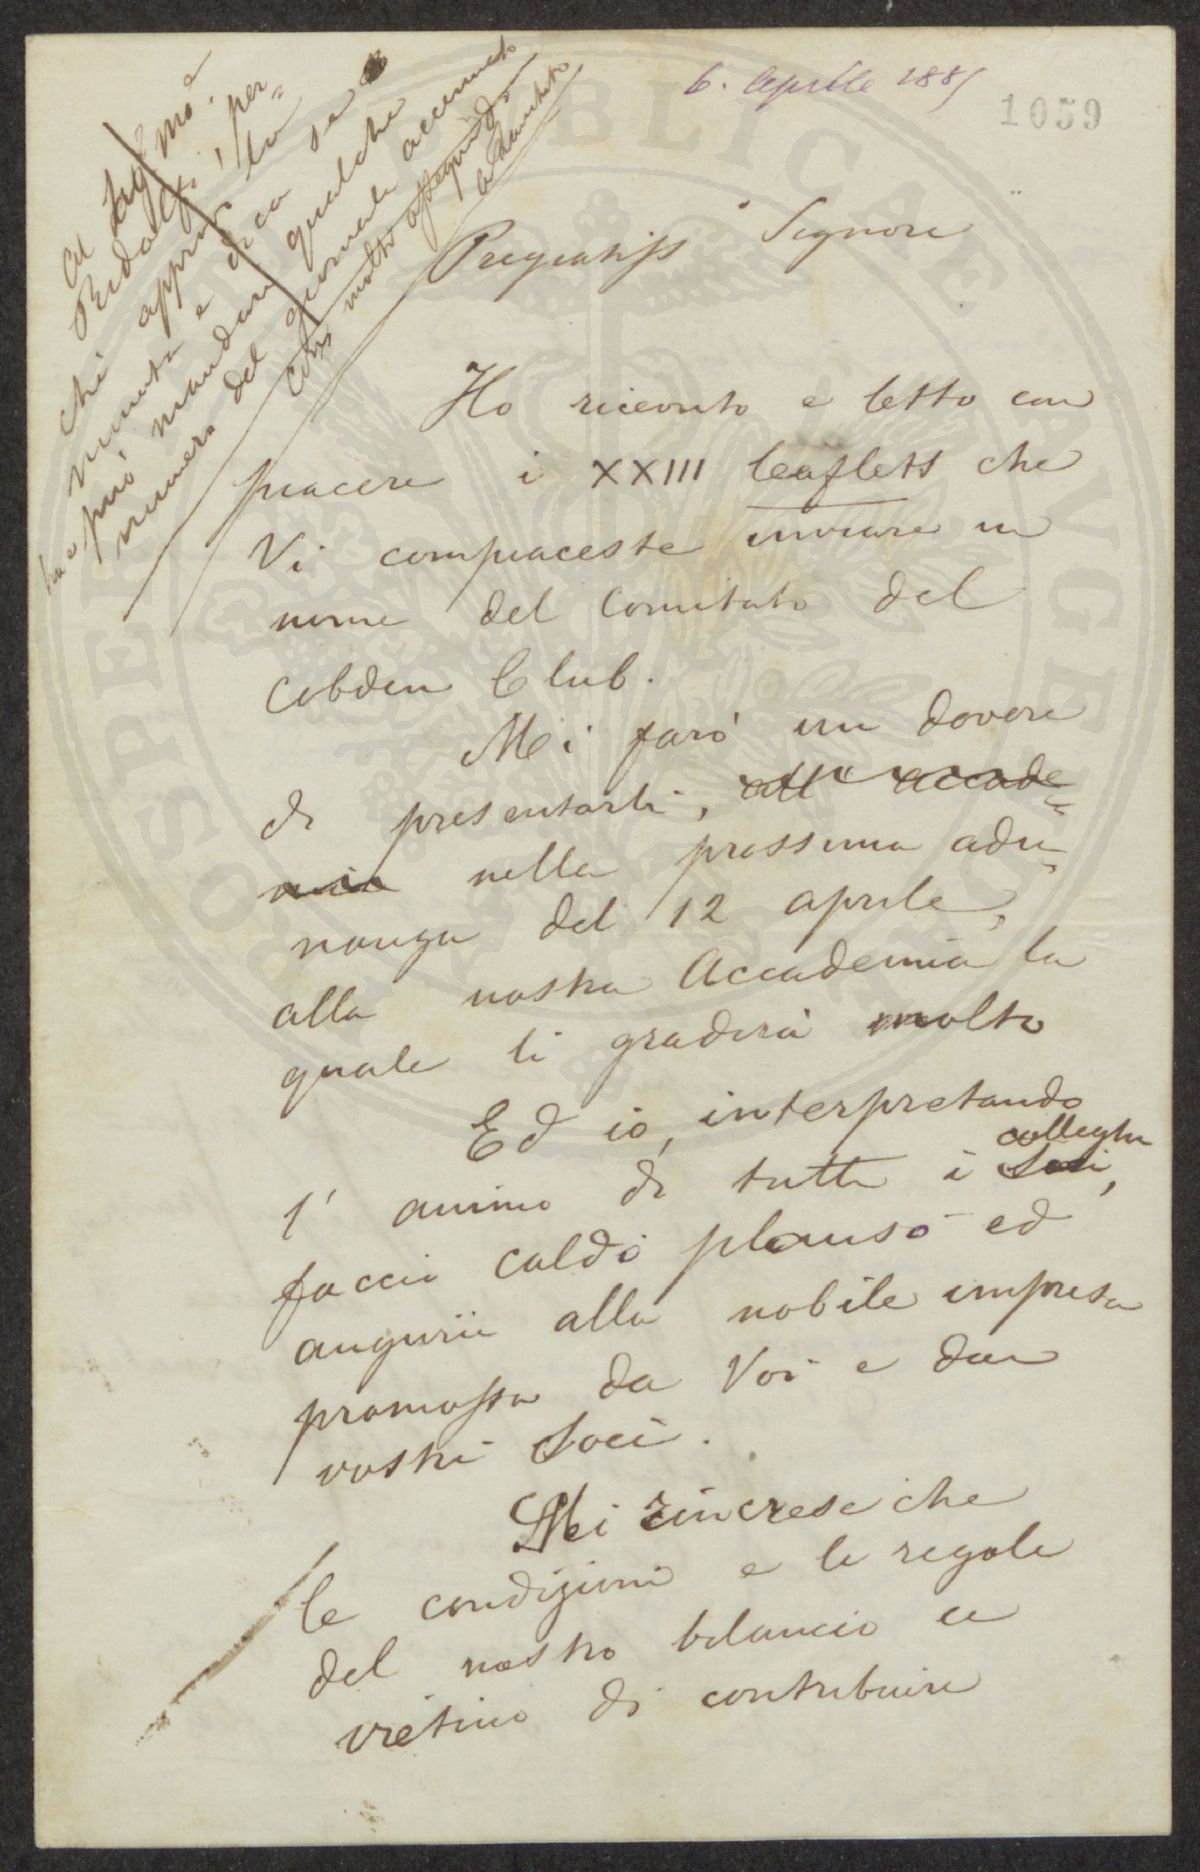 6. Aprile 1885
1059
Al Sigr Mse
Ridolfi, per=
chè approvi la
minuta e dica se
può mandare qualche
numero del giornale accennato
con molto ossequio
Pregiatiss° Signore
Ho ricevuto e letto con
piacere i XXIII leaflets che
Vi compiaceste inviare in
nome del Comitato del
Cobden Club.
Mi farò un dovere
di presentarli, all' accade=
mia nella prossima adu=
nanza del 12 aprile,
alla nostra Accademia la
quale li gradirà molto
Ed io, interpretando
l' animo di tutti i Soci, colleghi
faccio caldo plauso ed
augurii alla nobile impresa
promossa da Voi e dai
vostri Soci.
Mi rincresce che
le condizioni e le regole
del nostro bilancio ci
vietino di contribuire